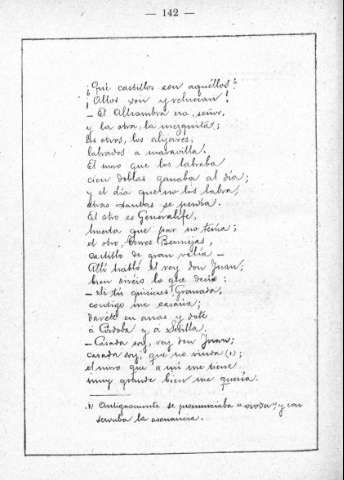 — 142 —
¿Qué castillos son aquéllos?
¡Altos son y relucían!
— El Alhambra era, señor,
y la otra, la mezquita;
los otros, los alijares,
labrados a maravilla.
El moro que los labraba
cien doblas ganaba al día;
y el día que no los labra,
otras tantas se perdía.
El otro es Generalife,
huerta que par no tenía;
el otro, Torres Bermejas,
castillo de gran valía —
Allí habló el rey don Juan;
bien oiréis lo que decía:
— Si tú quisieses, Granada,
contigo me casaría;
daréte en arras y dote
á Córdoba y á Sevilla.
— Casada soy, rey don Juan;
casada soy, que no viuda (1);
el moro que a mí me tiene
muy grande bien me quería.
1) Antiguamente se pronunciaba «vivda» y con
servaba la asonancia.